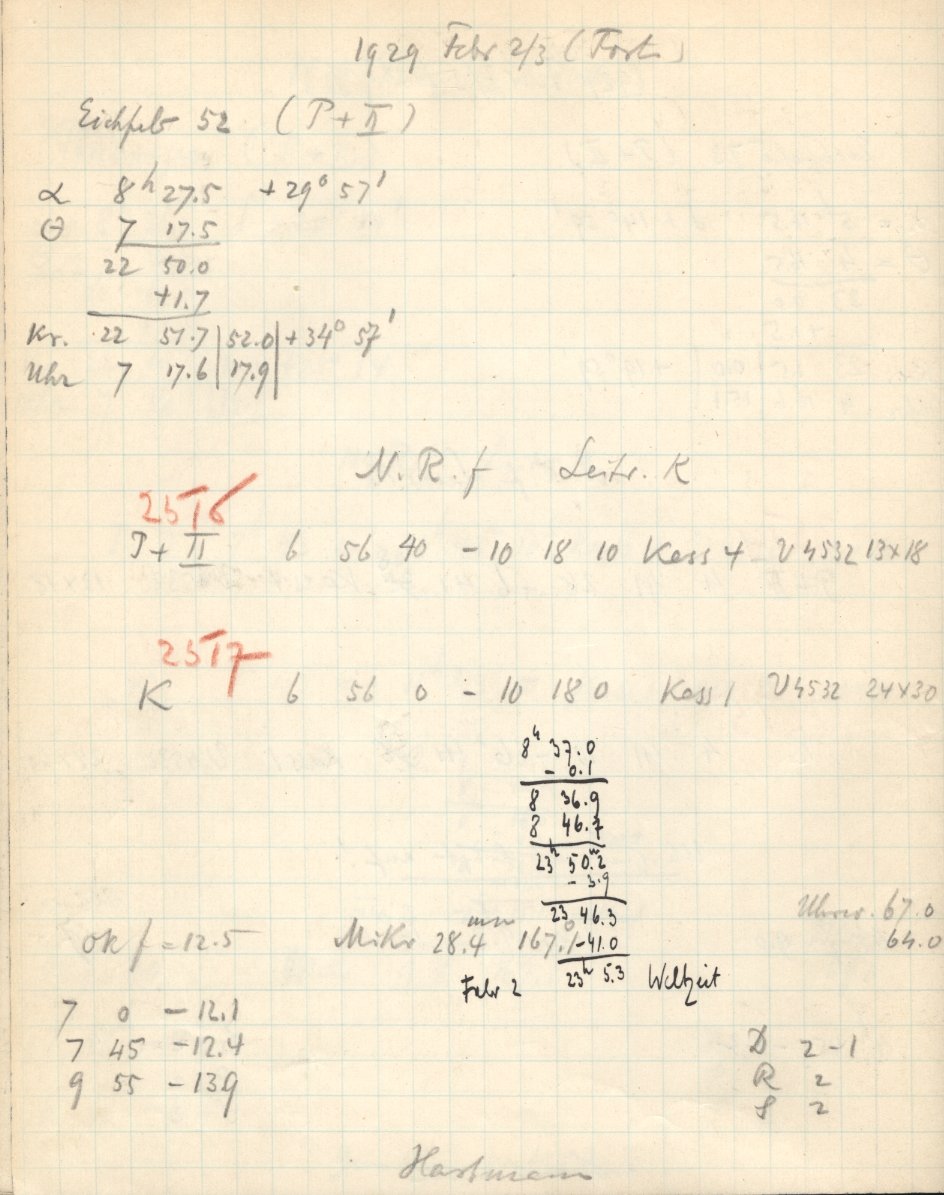 1929 Febr 2/3 (Forts)
Eichfeld 52 (P+II)
α 8h 27.5 +29° 57'
Θ 7 17.5
22 50.0
+1.7
Kr. 22 51.7 | 52.0 | +34° 57'
Uhr 7 17.6 | 17.9 |
N.R.f Leitr. K
25176
P+II 6 56 40 - 10 18 10 Kass 4 V4532 13x18
25177
K 6 56 0 - 10 18 0 Kass 1 V4532 24x30
8h 37.0
- 0.1
8 36.9
8 46.7
23h 50.m2
- 3.9
23 46.3
Ok f = 12.5 Mikr 28.4mm 167.° -41.0
Uhrw. 67.0
64.0
Febr 2 23h 5.3 Weltzeit
7 0 - 12.1
7 45 - 12.4
9 55 - 13.9
D 2-1
R 2
S 2
Hartmann